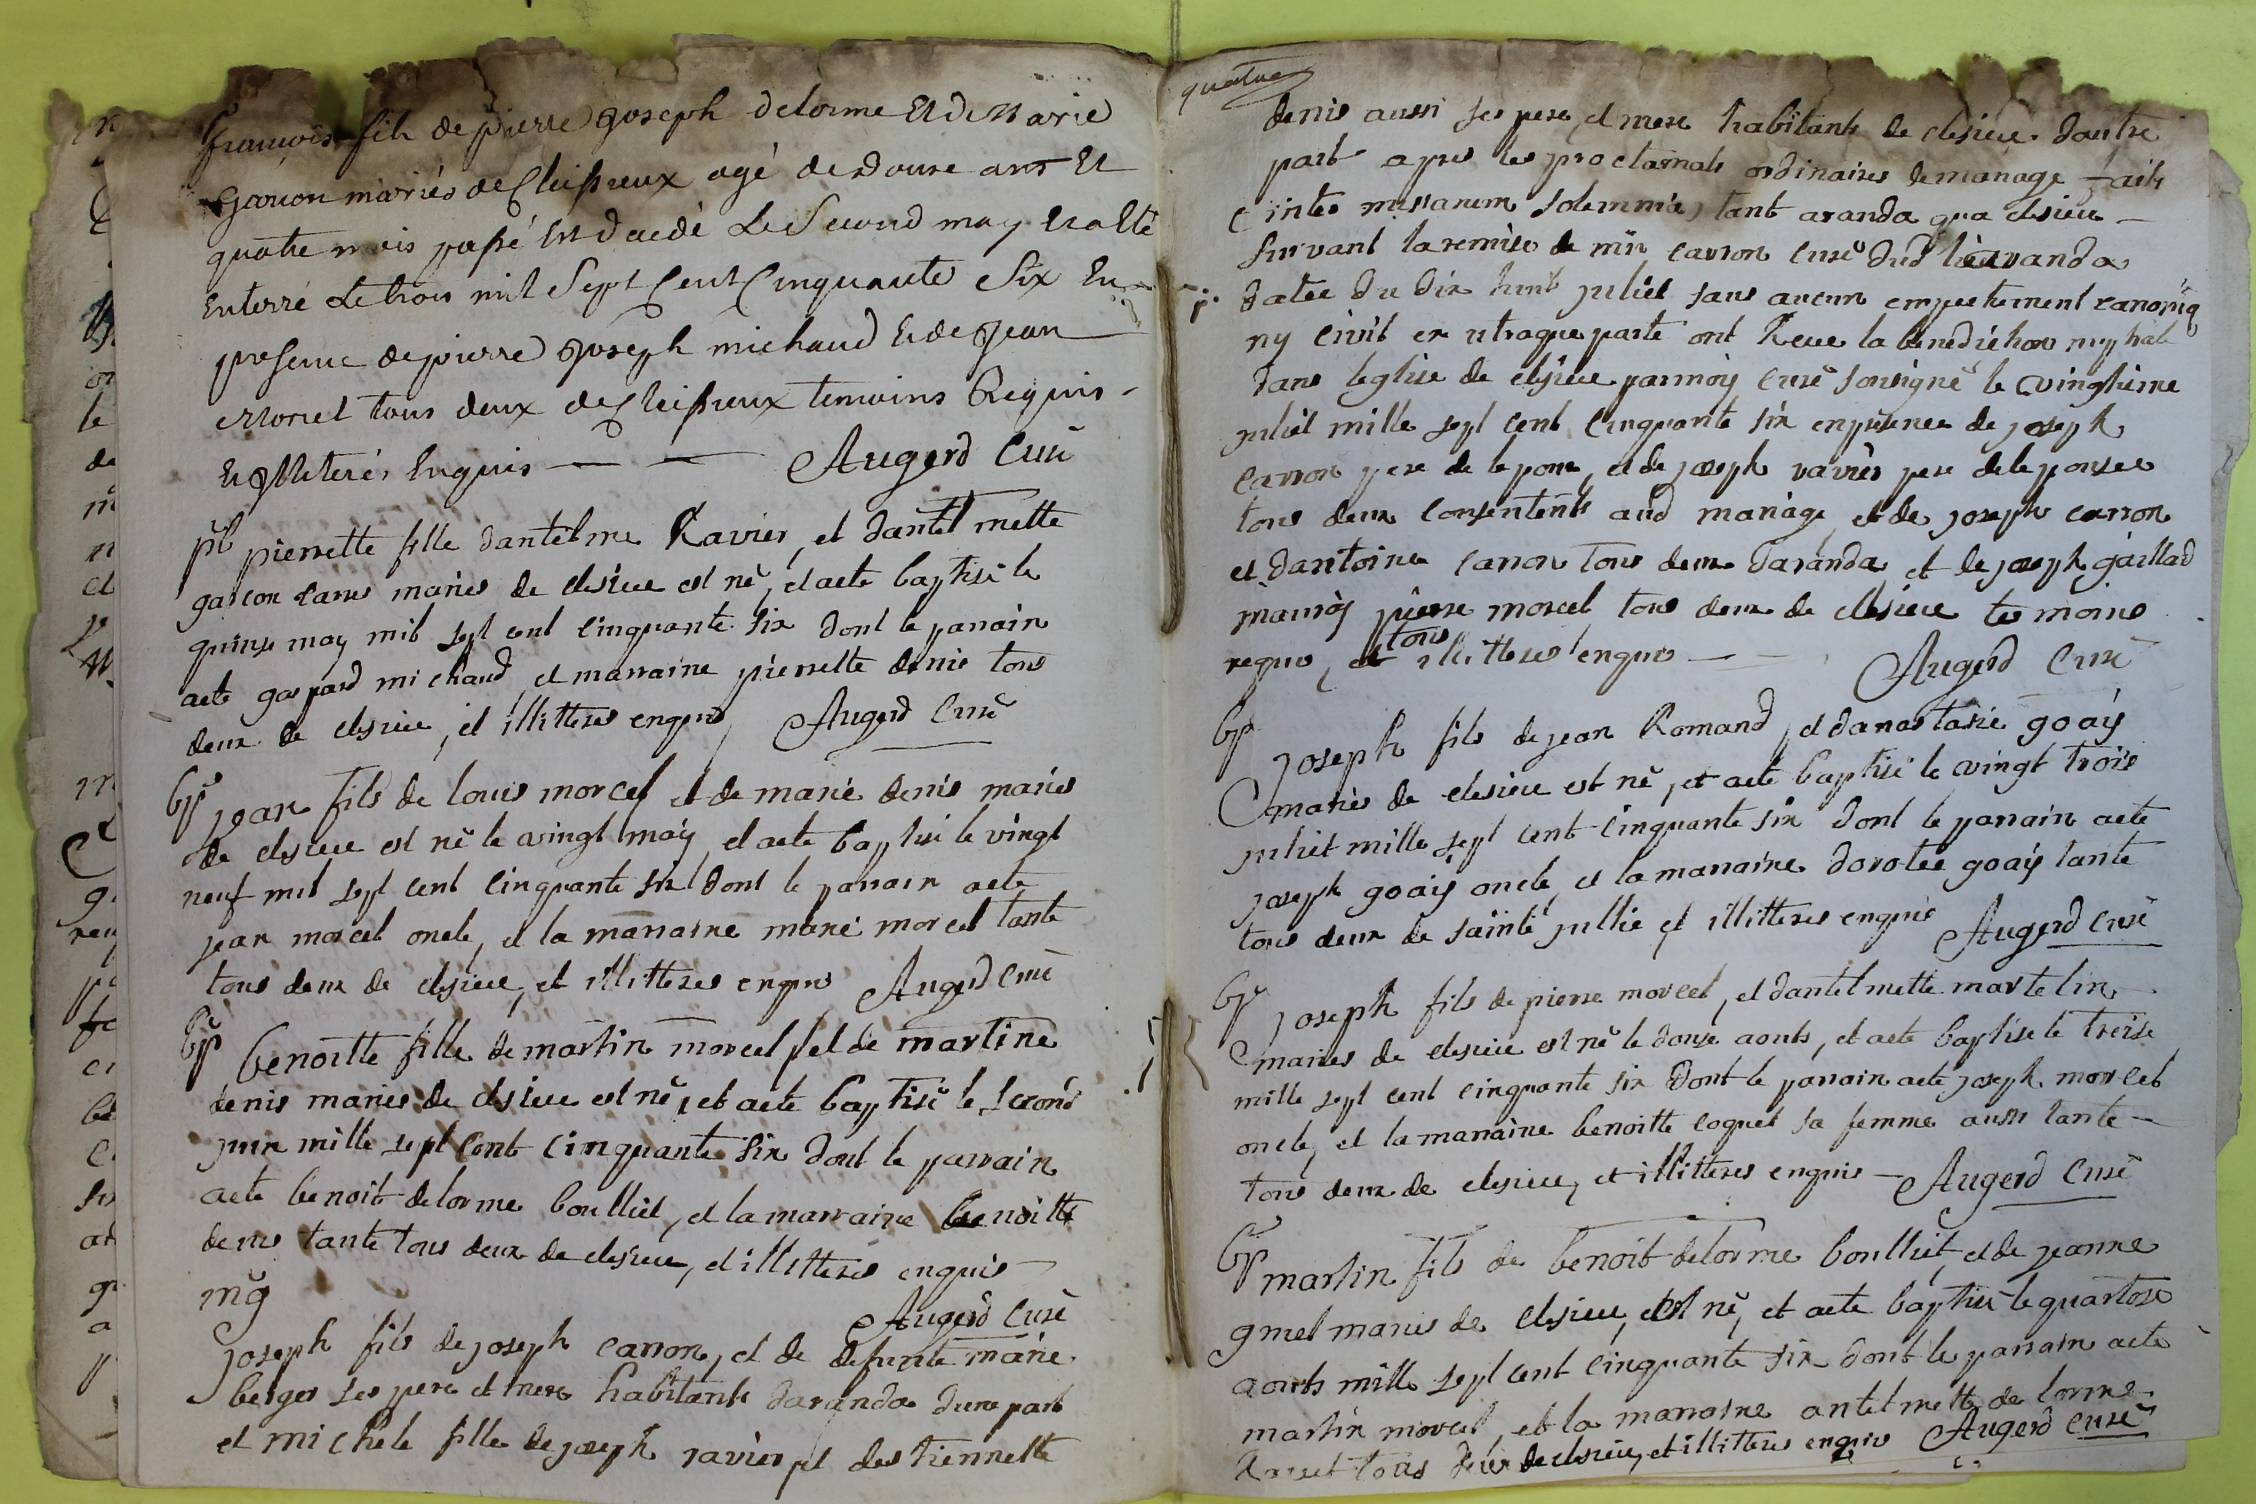 françois fils de pierre joseph delorme Et de Marie
Garcon mariés de Cleisieux agé de Douze ans Et
quatre mois passé Est decedé Le Second may Et a Eté
Enterré Le trois mil Sept Cent Cinquante Six En
presence de pierre Joseph michaud Et de Jean
Morcel tous deux de Cleisieux temoins Requis
Et Illiterés Enquis — — Augerd Curé
bp pierrette fille dantelme Ravier, et dantelmette
garcon carre mariés de clesieu est né, et aeté baptisé le
quinze may mil sept cent cinquante six dont le parrain
aeté gaspard michaud, et marraine pierrette denis tous
deux de clesieu, et illitteres enquis Augerd Curé
bp jean fils de louis morcel et de marie denis mariés
de clesieu est né le vingt may, et aeté baptisé le vingt
neuf mil sept cent cinquante six dont le parrain aeté
jean morcel oncle, et la marraine marie morcel tante
tous deux de clesieu, et illitteres enquis Augerd Curé
bp benoitte fille de martin morcel, et de martine
denis mariés de clesieu est né, et aeté baptisé le second
juin mille sept cent cinquante six dont le parrain
aeté benoit delorme boulliet, et la marraine benoitte
denis tante tous deux de clesieu, et illitteres enquis —
mg Augerd Curé
joseph fils de joseph carron, et de defunte marie
berger ses pere et mere habitants daranda dune part
et michele fille de joseph ravier et destiennette
quatre
denis aussi ses pere, et mere habitants de clesieu dautre
part apres les proclamats ordinaires de mariage faits
inter missarum solemnia, tant a aranda qua clesieu —
survant la remise de mr carron curé dud aranda
datée du dix huit juliet sans aucun empechement canoniq
ny civil ex utraque parte ont Receu la benediction nuptiale
dans leglise de clesieu parmoy curé sousigné le vingtieme
juliet mille sept cent cinquante six enpresence de joseph
carron pere de lepoux, et de joseph ravier pere de lepousée
tous deux consentents aud mariage et de joseph carron
et dantoine carron tous deux daranda, et de joseph gaillad
pierre morcel tous deux de clesieu temoins
requis, et tous illitteres enquis — — Augerd Curé
bp joseph fils de jean Romand, et danastasie goay
mariés de clesieu est né, et aeté baptisé le vingt trois
juliet mille sept cent cinquante six dont le parrain aeté
joseph goay oncle, et la marraine dorotée goay tante
tous deux de sainte jullie et illitteres enquis Augerd Curé
bp joseph fils de pierre morcel, et dantelmette martelin
mariés de clesieu est né le douze aouts, et aeté baptisé le treise
mille sept cent cinquante six dont le parrain aeté joseph morcel
oncle, et la marraine benoitte coquet sa femme aussi tante —
tous deux de clesieu, et illitteres enquis — Augerd Curé
bp martin fils de benoit delorme boulliet, et de jeanne
gmel mariés de clesieu, est né, et aeté baptisé le quartose
aouts mille sept cent cinquante six dont le parrain aeté
martin morcel, et la marraine antelmette de lorme
tous deux de clesieu, et illitteres enquis Augerd Curé